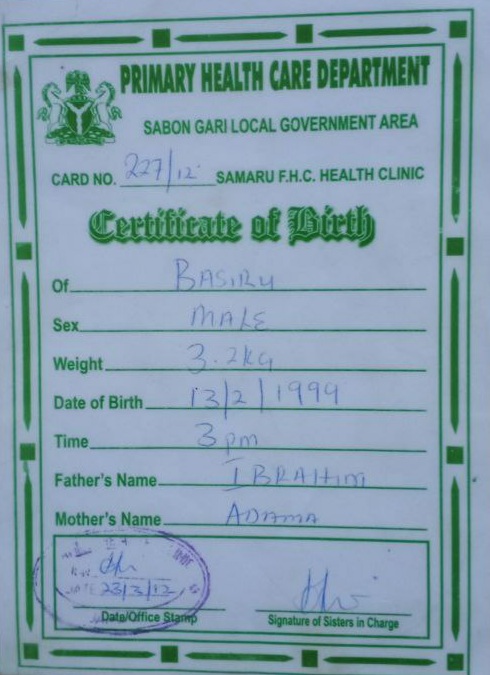 PRIMARY HEALTH CARE DEPARTMENT
SABON GARI LOCAL GOVERNMENT AREA
CARD NO. 227/12 SAMARU F.H.C. HEALTH CLINIC
Certificate of Birth
Of BASIRU
Sex MALE
Weight 3.2kg
Date of Birth 13/2/1999
Time 3pm
Father's Name IBRAHIM
Mother's Name ADAMA
23/3/12
Date/Office Stamp Signature of Sisters in Charge